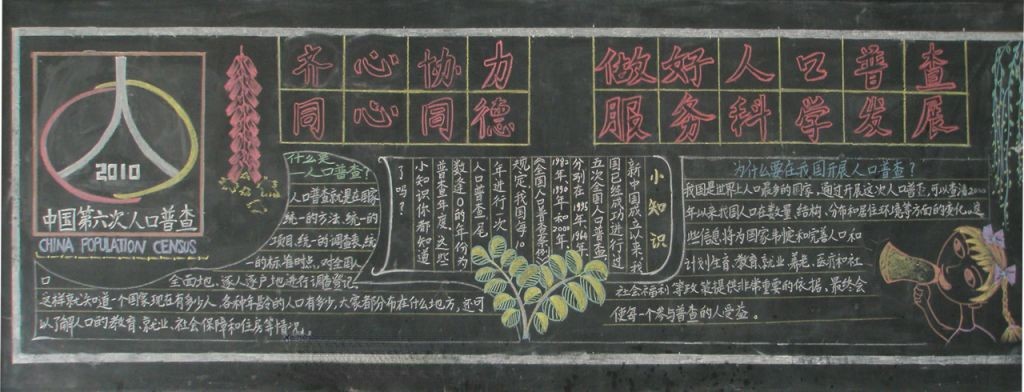 2010
中国第六次人口普查
CHINA POPULATION CENSUS
齐心协力
同心同德
做好人口普查
服务科学发展
什么是
人口普查?
人口普查就是在国家
统一的方法、统一的
项目、统一的调查表、统
一的标准时点,对全国人
口全面地、逐人逐户地进行调查登记。
这样就知道一个国家现住有多少人、各种年龄的人口有多少,大家都分布在什么地方,还可
以了解人口的教育、就业、社会保障和住房等情况。
小知识
新中国成立以来,我
国已经成功进行过
五次全国人口普查,
分别在1953年、1964年、
1982年、1990年和2000年。
《全国人口普查条例》
规定,我国每10
年进行一次
人口普查,尾
数逢0的年份为
普查登记年度。这些
小知识你都知道
了吗?
为什么要在我国开展人口普查?
我国是世界上人口最多的国家,通过开展这次人口普查,可以查清2000
年以来我国人口在数量、结构、分布和居住环境等方面的变化。这
些信息将为国家制定和完善人口和
计划生育、教育、就业、养老、医疗和社
社会福利等政策提供非常重要的依据,最终会
使每一个参与普查的人受益。